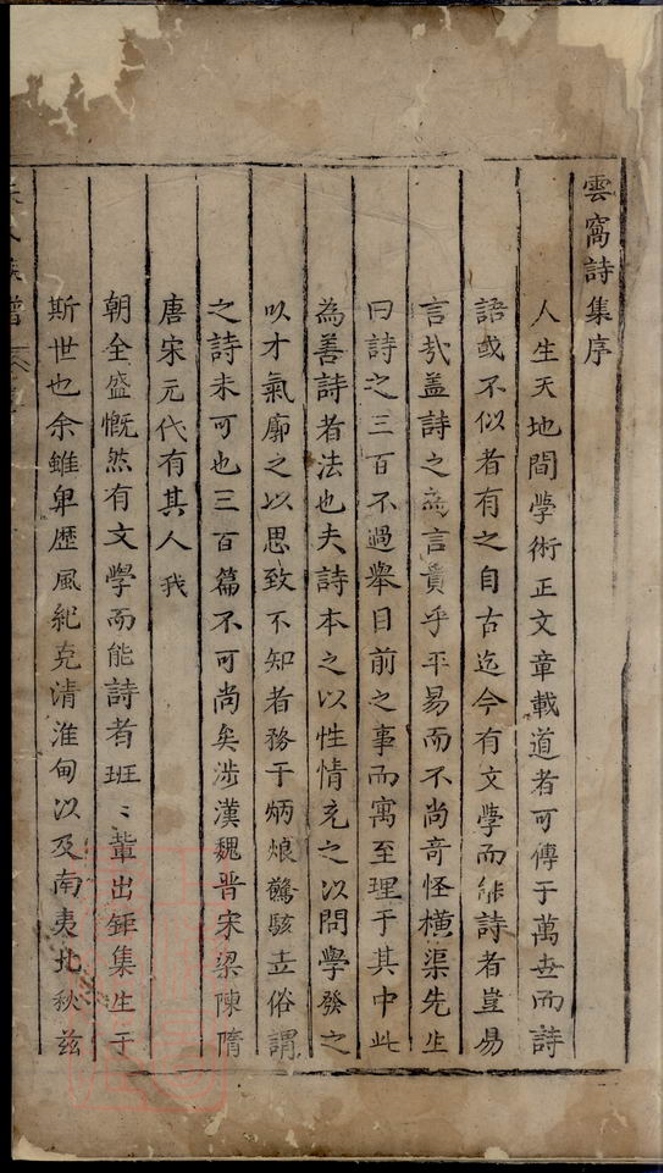 雲窩詩集序
人生天地間學術正文章載道者可傳于萬世而詩
語或不似者有之自古迄今有文學而能詩者豈易
言哉盖詩之為言貴乎平易而不尚奇怪橫渠先生
曰詩之三百不過舉目前之事而寓至理于其中此
為善詩者法也夫詩本之以性情充之以問學發之
以才氣廓之以思致不知者務于炳烺驚駭世俗謂
之詩未可也三百篇不可尚矣涉漢魏晋宋梁陳隋
唐宋元代有其人我
朝全盛慨然有文學而能詩者班〻輩出鉅集生于
斯世也余雖卑歷風紀克清淮甸以及南夷北秋茲